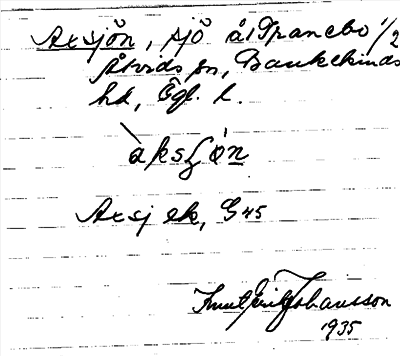 Axsjön, sjö å Tranebo 1/2
Åtvids sn, Bankekinds
hd, Ögl. l.
àksʃón
Axsj ek, G 45
Knut Erik Johansson
1935